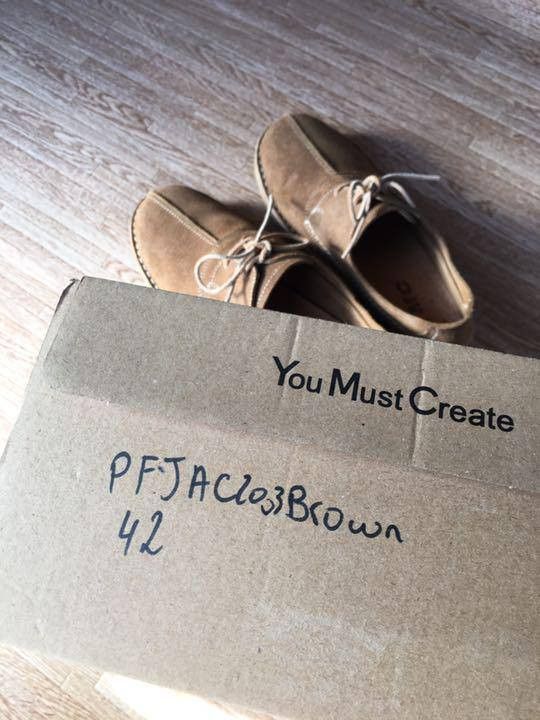 You Must Create
PFJAC203Brown
42